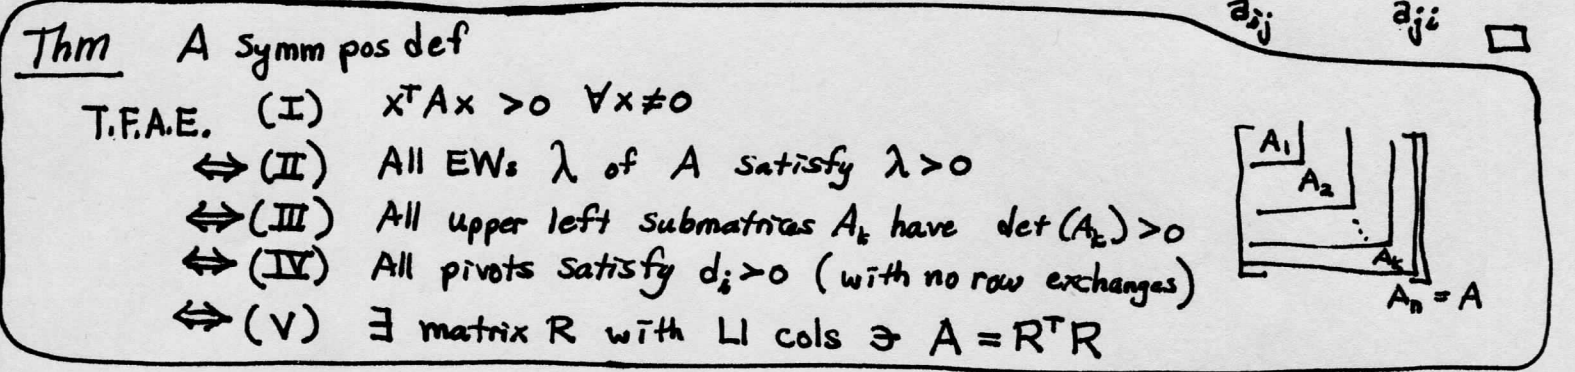 a_ij a_ji □
Thm A symm pos def
T.F.A.E. (I) xᵀAx >0 ∀x≠0
⇔(II) All EWs λ of A satisfy λ>0
⇔(III) All upper left submatrices A_k have det(A_k)>0
⇔(IV) All pivots satisfy d_i>0 (with no row exchanges)
⇔(V) ∃ matrix R with LI cols ∋ A=RᵀR
A₁
A₂
A_k
A_n = A